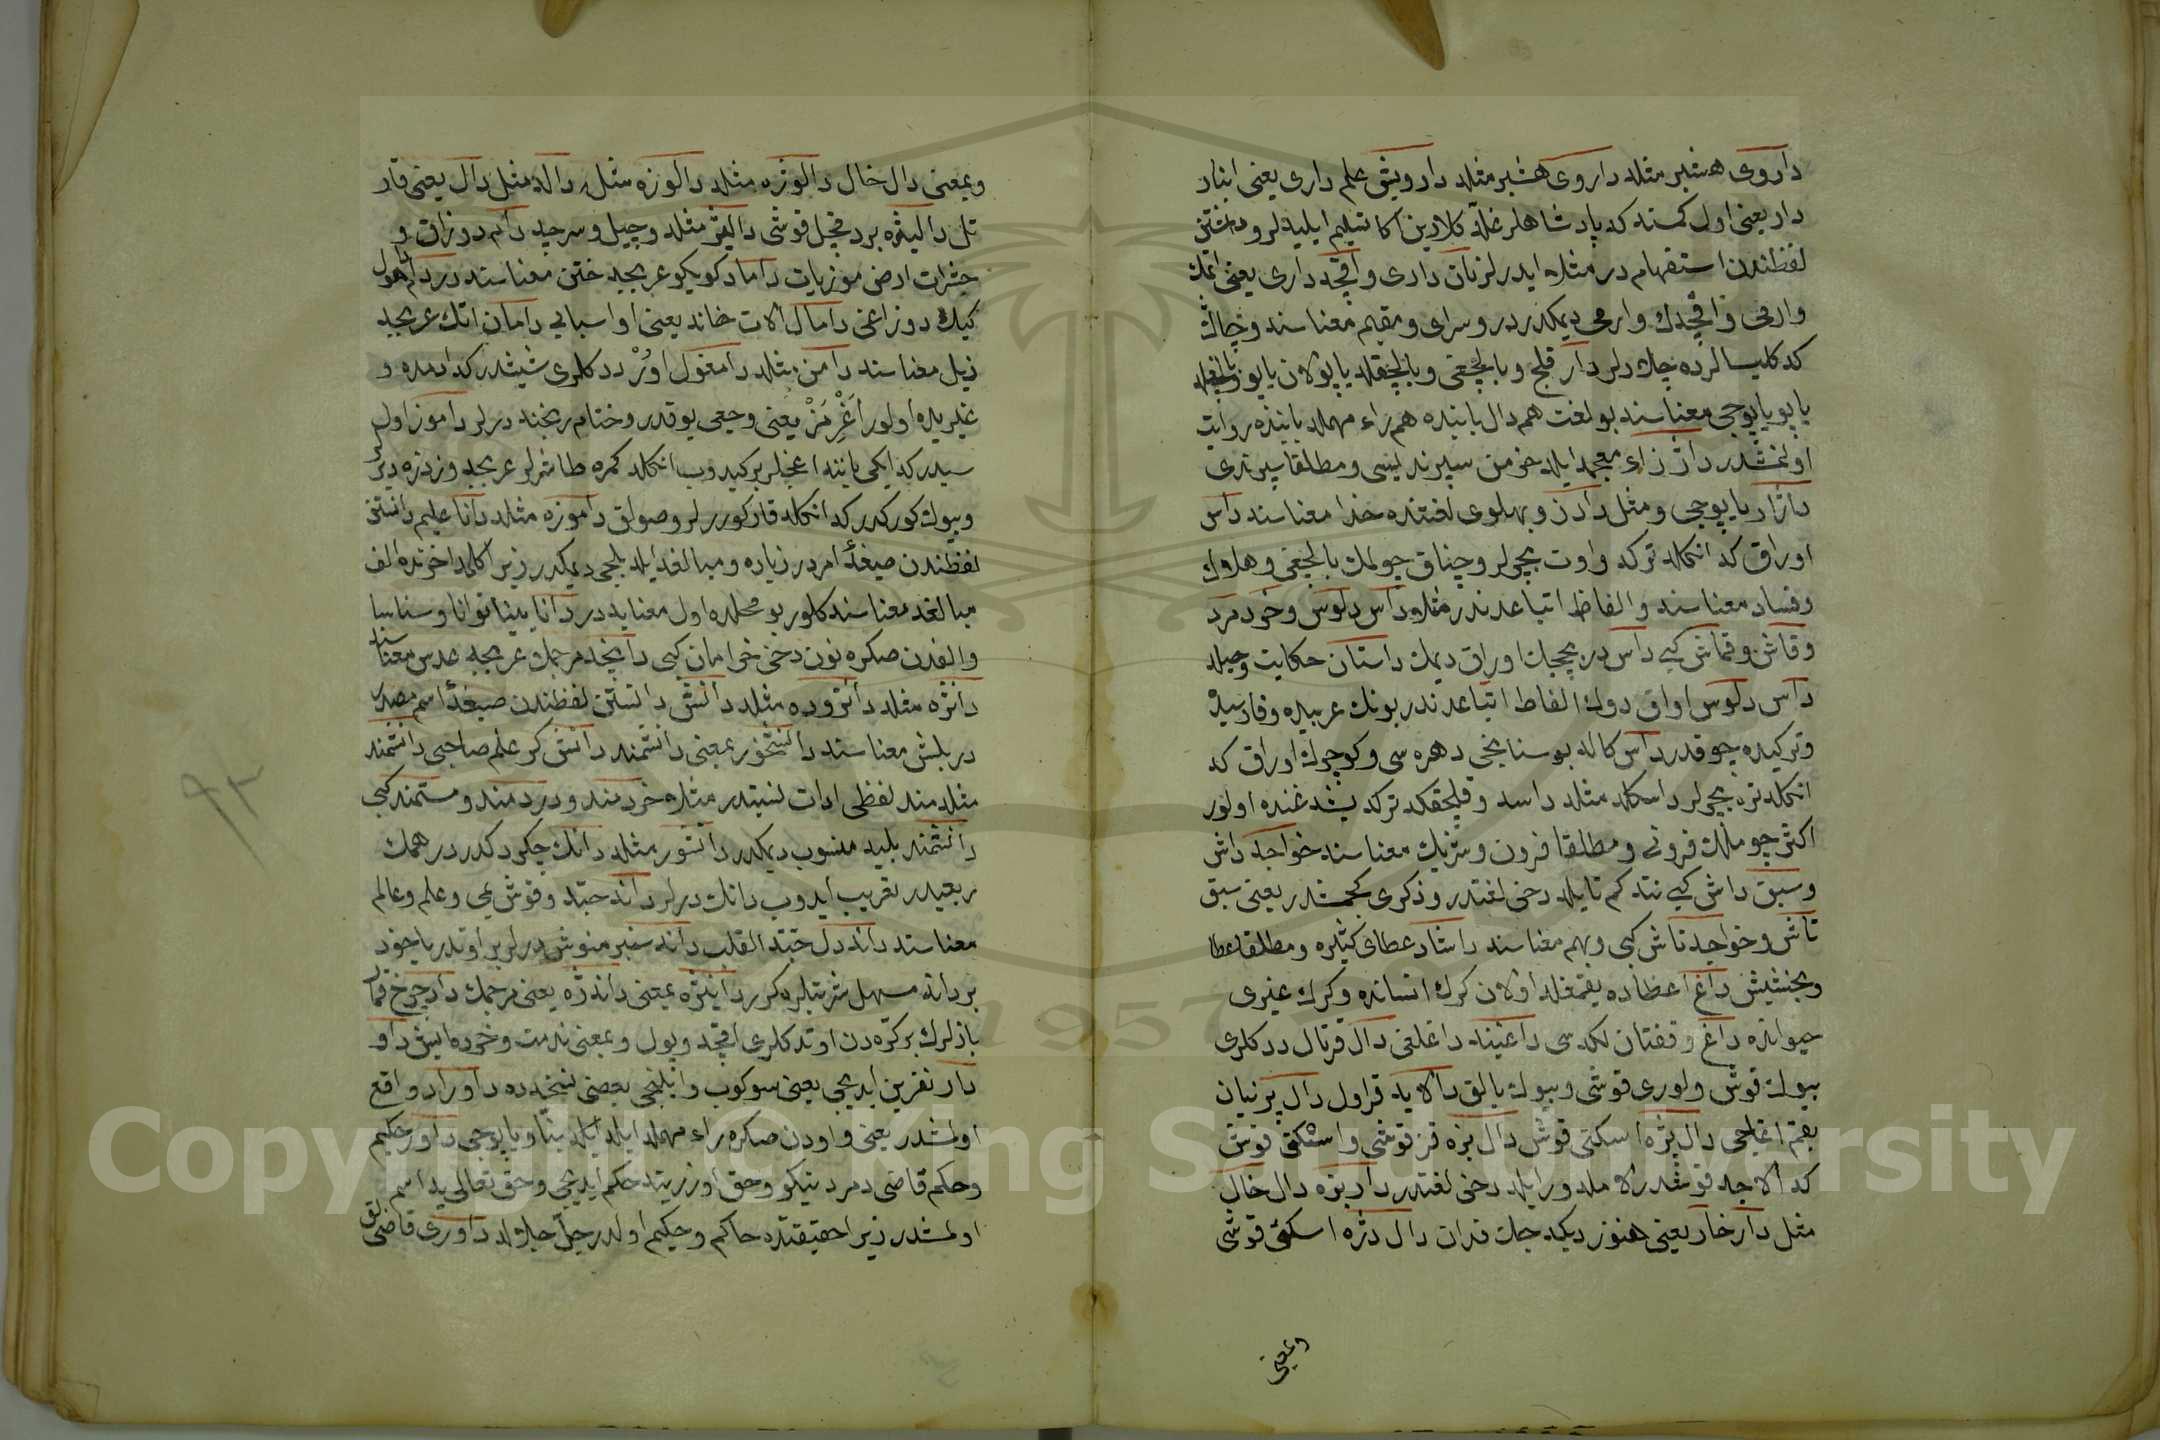 داروی هشبر مثله داروی هشبر مثله دارویش علم داری یعنی انبار
دار یعنی اول کمسنه که پادشاهلر غله کلادین اکا تسلیم ایلیه لر وداشتن
لفظندن استفهام در مثله ایدرلر نان داری واقچه داری یعنی اتمك
وارمی واقچه ك وارمی دیمکدر در وسرای ومقیم معناسنه
که کلیسالرده چك دلر دار قلج وبالچقی وبالچقله یاپولان یاپو
یاپو یاپوجی معناسنه بو لغت هم دال بابنده هم راء مهمله بابنده روایت
اولنمشدر داژ زاء معجمه ایله خرمن سپرنديسی ومطلقا سپرندی
داژار یاپوجی ومثل دادن وبهلوی لغتنده خذا معناسنه داس
اوراق که انکله ترکه واوت بچرلر وچناق چولمك بالچغی وهلاك
وفساد معناسنه والفاظ اتباعدندر مثله داس دلوس وخرد مرد
وقاش وقماش کبی داس دربچك اوراق دیمك داستان حکایت وحیله
داس دلوس اواق دوك الفاظ اتباعدندر بونك عربیده وفارسیده
وترکیده چوقدر داس کاله بوستانجی دهره سی وکوچوك اوراق که
انکله تره بچرلر داسکله مثله داسه وقلجقکه ترکه بشه غنده اولور
اکثر چوملك فرونی ومطلقا فرون وشریك معناسنه خواجه داش
وسبق داش کبی نته کم تا یله دخی لغتدر وذکری کچمشدر یعنی سبق
تاش وخواجه تاش کبی وبهم معناسنه داشاد عطای کثیره ومطلقا عطا
وبخشیش داغ اعضاده یقمغله اولان کرك انسانده وکرك غیری
حیوانده داغ وقفتان لکه سی داغینه داغلغی دال قرتال ددکلری
بیوك قوش ولوری قوشی وبیوك بالق دالاید قراول دال پرنیان
بقم اغاجی دال بزه اسکتی قوش دال بزه قز قوشی واسکتی قوش
که الاجه قوشدر لاملد ورایله دخی لغتدر دار بزه دال خال
مثل دار خار یعنی هنوز دیکه جك فدان دال دژه اسکتی قوشی
وبمعنی
وبمعنی دال خال دالوژه مثله دالوزه مثله داله مثل دال یعنی قار
تل دالیژه برد قجیل قوشی دالیقز مثله وچیل وسرچه دام دوزاق و
حشرات ارض موزیات داماد کویکو عربجه ختن معناسنه در دام اهول
کیك دوزاغی دامال الات خانه یعنی او اسبابی دامان اتك عربجه
ذیل معناسنه دامن مثله دامغول اور ددکلری شیشدر که ادمده و
غیریده اولور اغرمز یعنی وجعی یوقدر وختام ریخنه درلر داموز اول
سیدر که ایکی یاننه اغجلر برکیدوب انکله کمره طاشرلر عربجه وزنزه دیر
وبیوك کورکدر که انکله قار کوررلر وصولق داموزه مثله دانا علیم دانستن
لفظندن صیغۀ امردر زیاده ومبالغه ایله بلجی دیمکدر زیرا کلمه اخرنده الف
مبالغه معناسنه کلور بو محلده اول معنایه در دانا بینا توانا وسناسا
والفدن صکره نون دخی خرامان کبی دانجه مرجمك عربجه عدس معناسنه
دانژه مثله دانژوده مثله دانش دانستن لفظندن صیغۀ اسم مصدر
در بلش معناسنه دانشخور بمعنی دانشمند دانش کر علم صاحبی دانشمند
مثله مند لفظی ادات نسبتدر مثله خردمند ودردمند ومستمند کبی
دانشمند بلیه منسوب دیمکدر دانشور مثله دانك چکردکدر درهمك
ربعیدر تقریب ایدوب دانك درلر دانه حبه وقوش یمی وعلم وعالم
معناسنه دانه دل حبة القلب دانه سنبر منوش درلر بر اوتدر یاخود
بردانه مسهل شربتلره کرر دانیژه بمعنی دانذژه یعنی مرجمك داو چرخ قما
بازلرك برکزه دن اوته کلری اقچه وپول وبمعنی ندمت وخرده ایش داو
دار نفرین ایدیجی یعنی سوکوب وانلنمجی بعضی نسخه ده داوراد واقع
اولمشدر یعنی واودن صکره راء مهمله ایله ایله بنا ویاپوجی داور حکیم
وحکم قاضی دمرد نیکو وحق اوزرینه حکم ایدیجی وحق تعالی یه اسم
اولمشدر زیرا حقیقتده حاکم وحکیم اولدر جل جلاله داوری قاضی لق
٩٢